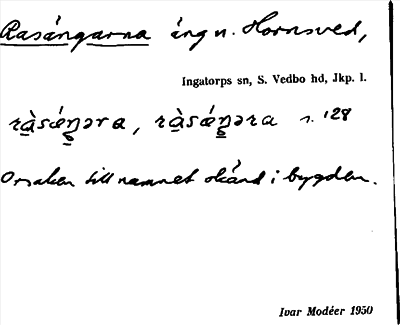 Rasängarna äng u. Hornsved,
Ingatorps sn, S. Vedbo hd, Jkp. l.
rà̱sǽŋ̱əra, rà̱sǽŋ̱əra s. 128
Orsaken till namnet okänd i bygden.
Ivar Modéer 1950